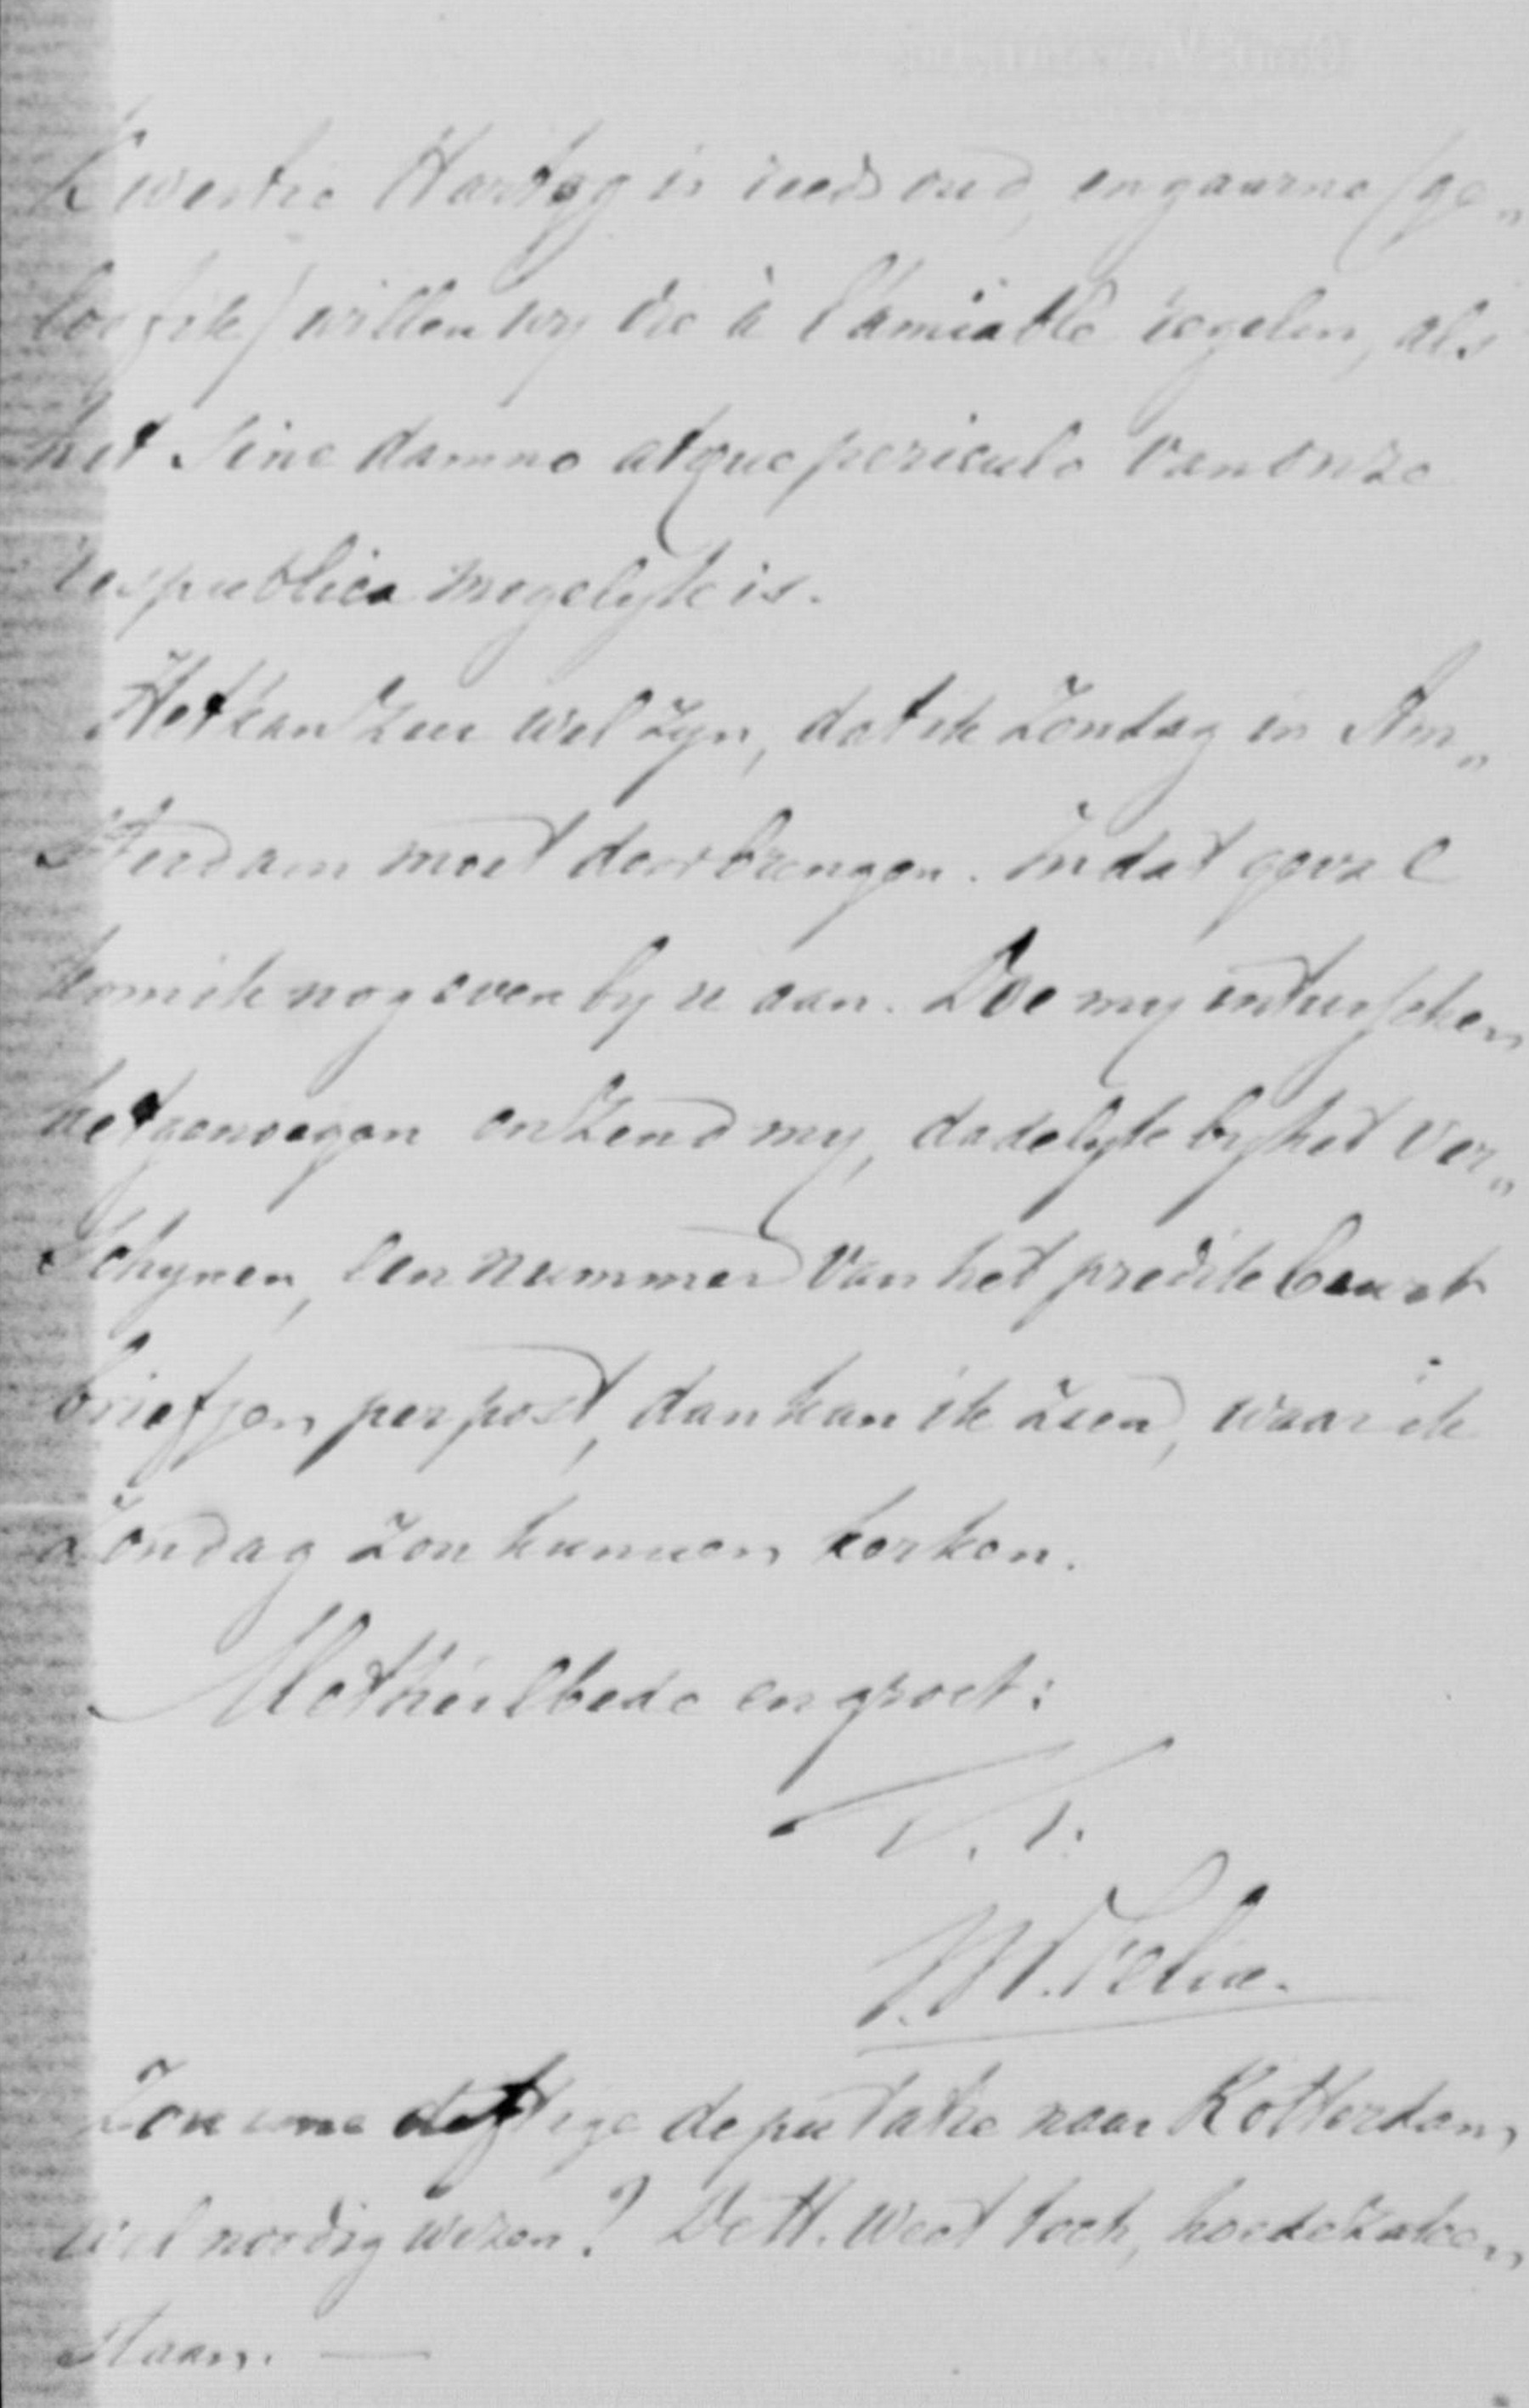 kwestie Hartog is reeds oud, en gaarne (ge„
loof ik) willen wy die à l'amiable regelen, als
het sine damno atque periculo van onze
respublica mogelyk is.
Het kan zeer wel zyn, dat ik Zondag in Am„
sterdam moet doorbrengen. In dat geval
kom ik nog even by u aan. Doe my intusschen
het genoegen en zend my, dadelyk by het ver„
schynen, een nummer van het predikbeurt
briefjen per post, dan kan ik zien, waar ik
Zondag zou kunnen kerken.
Met heilbede en groet:
T. T.
Zou eene deftige deputatie naar Rotterdam
wel noodig wezen? De H. weet toch, hoe de zaken
staan. —